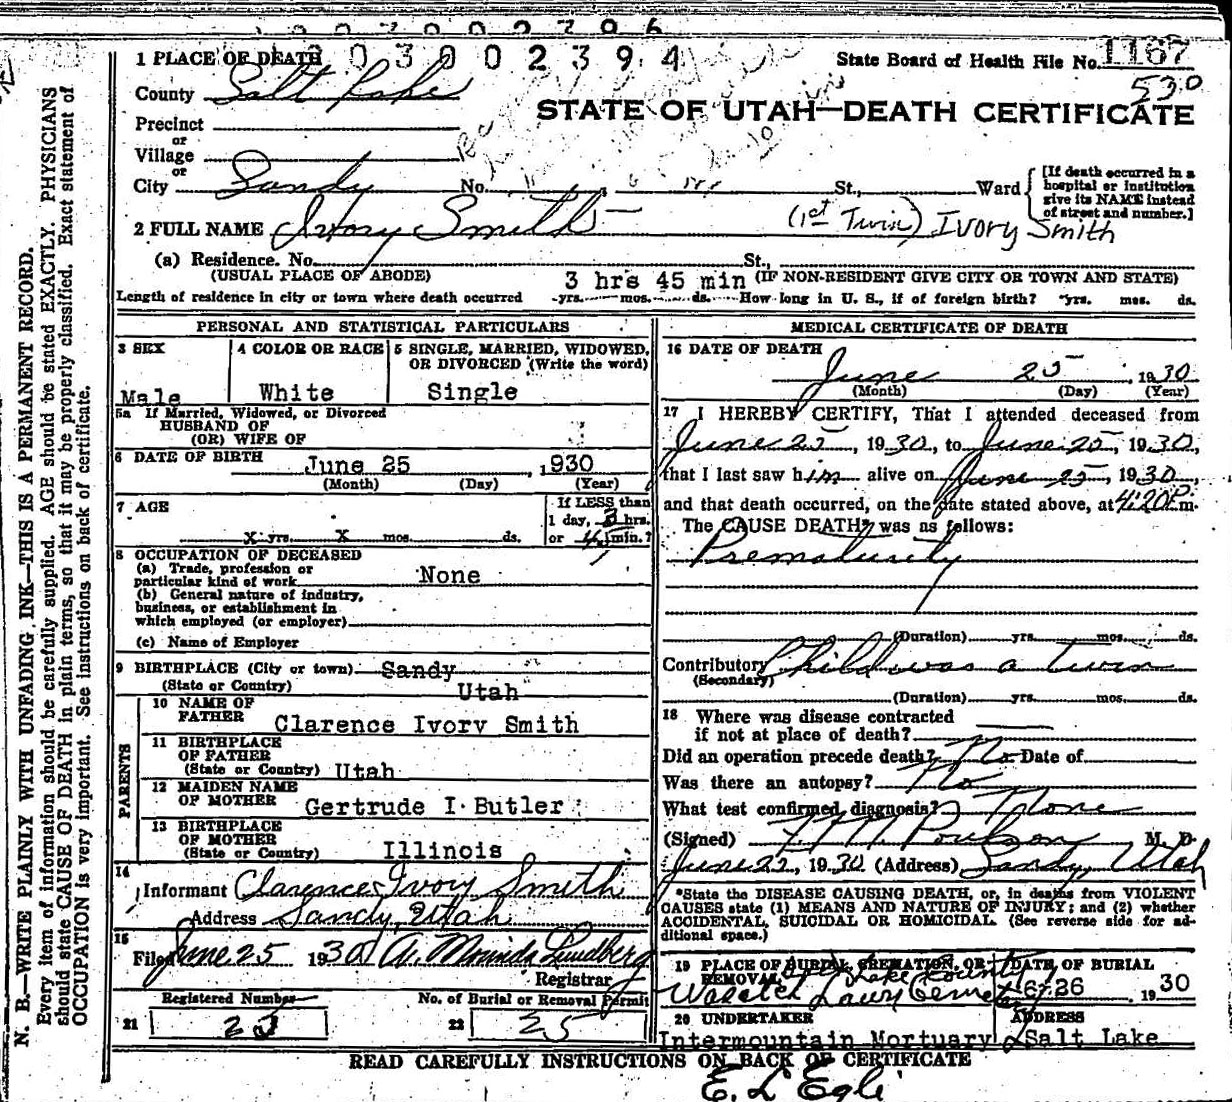 2030002394
1 PLACE OF DEATH
State Board of Health File No. 1167
530
County Salt Lake
STATE OF UTAH—DEATH CERTIFICATE
Precinct
or
Village
or
City Sandy No. St., Ward
[If death occurred in a hospital or institution give its NAME instead of street and number.]
2 FULL NAME Ivory Smith (1st Twin) Ivory Smith
(a) Residence. No. St.,
(USUAL PLACE OF ABODE) 3 hrs 45 min (IF NON-RESIDENT GIVE CITY OR TOWN AND STATE)
Length of residence in city or town where death occurred yrs. mos. ds. How long in U. S., if of foreign birth? yrs. mos. ds.
PERSONAL AND STATISTICAL PARTICULARS
3 SEX
Male
4 COLOR OR RACE
White
5 SINGLE, MARRIED, WIDOWED,
OR DIVORCED (Write the word)
Single
5a If Married, Widowed, or Divorced
HUSBAND OF
(OR) WIFE OF
6 DATE OF BIRTH June 25, 1930
(Month) (Day) (Year)
7 AGE
X yrs. X mos. ds.
If LESS than
1 day, 3 hrs.
or 45 min.?
8 OCCUPATION OF DECEASED
(a) Trade, profession or
particular kind of work None
(b) General nature of industry,
business, or establishment in
which employed (or employer)
(c) Name of Employer
9 BIRTHPLACE (City or town) Sandy
(State or Country) Utah
PARENTS
10 NAME OF
FATHER Clarence Ivory Smith
11 BIRTHPLACE
OF FATHER
(State or Country) Utah
12 MAIDEN NAME
OF MOTHER Gertrude I. Butler
13 BIRTHPLACE
OF MOTHER
(State or Country) Illinois
14
Informant Clarence Ivory Smith
Address Sandy, Utah
15
Filed June 25 1930 A. Minnida Lundberg
Registrar
Registered Number
21 23
No. of Burial or Removal Permit
22 25
MEDICAL CERTIFICATE OF DEATH
16 DATE OF DEATH
June 25, 1930
(Month) (Day) (Year)
17 I HEREBY CERTIFY, That I attended deceased from
June 25, 1930, to June 25, 1930,
that I last saw him alive on June 25, 1930,
and that death occurred, on the date stated above, at 4:20 P.m.
The CAUSE DEATH* was as follows:
Prematurity
(Duration) yrs. mos. ds.
Contributory Child was a twin
(Secondary)
(Duration) yrs. mos. ds.
18 Where was disease contracted
if not at place of death?
Did an operation precede death? No Date of
Was there an autopsy? No
What test confirmed diagnosis? None
(Signed) Poulson M. D.
June 22, 1930 (Address) Sandy, Utah
*State the DISEASE CAUSING DEATH, or, in deaths from VIOLENT
CAUSES state (1) MEANS AND NATURE OF INJURY; and (2) whether
ACCIDENTAL, SUICIDAL OR HOMICIDAL. (See reverse side for ad-
ditional space.)
19 PLACE OF BURIAL, CREMATION, OR
REMOVAL Lake County
Wasatch Lawn Cemetery
DATE OF BURIAL
6-26, 1930
20 UNDERTAKER
Intermountain Mortuary
ADDRESS
Salt Lake
READ CAREFULLY INSTRUCTIONS ON BACK OF CERTIFICATE
E. L. Egli
N. B.—WRITE PLAINLY WITH UNFADING INK—THIS IS A PERMANENT RECORD.
Every item of information should be carefully supplied. AGE should be stated EXACTLY. PHYSICIANS
should state CAUSE OF DEATH in plain terms, so that it may be properly classified. Exact statement of
OCCUPATION is very important. See instructions on back of certificate.